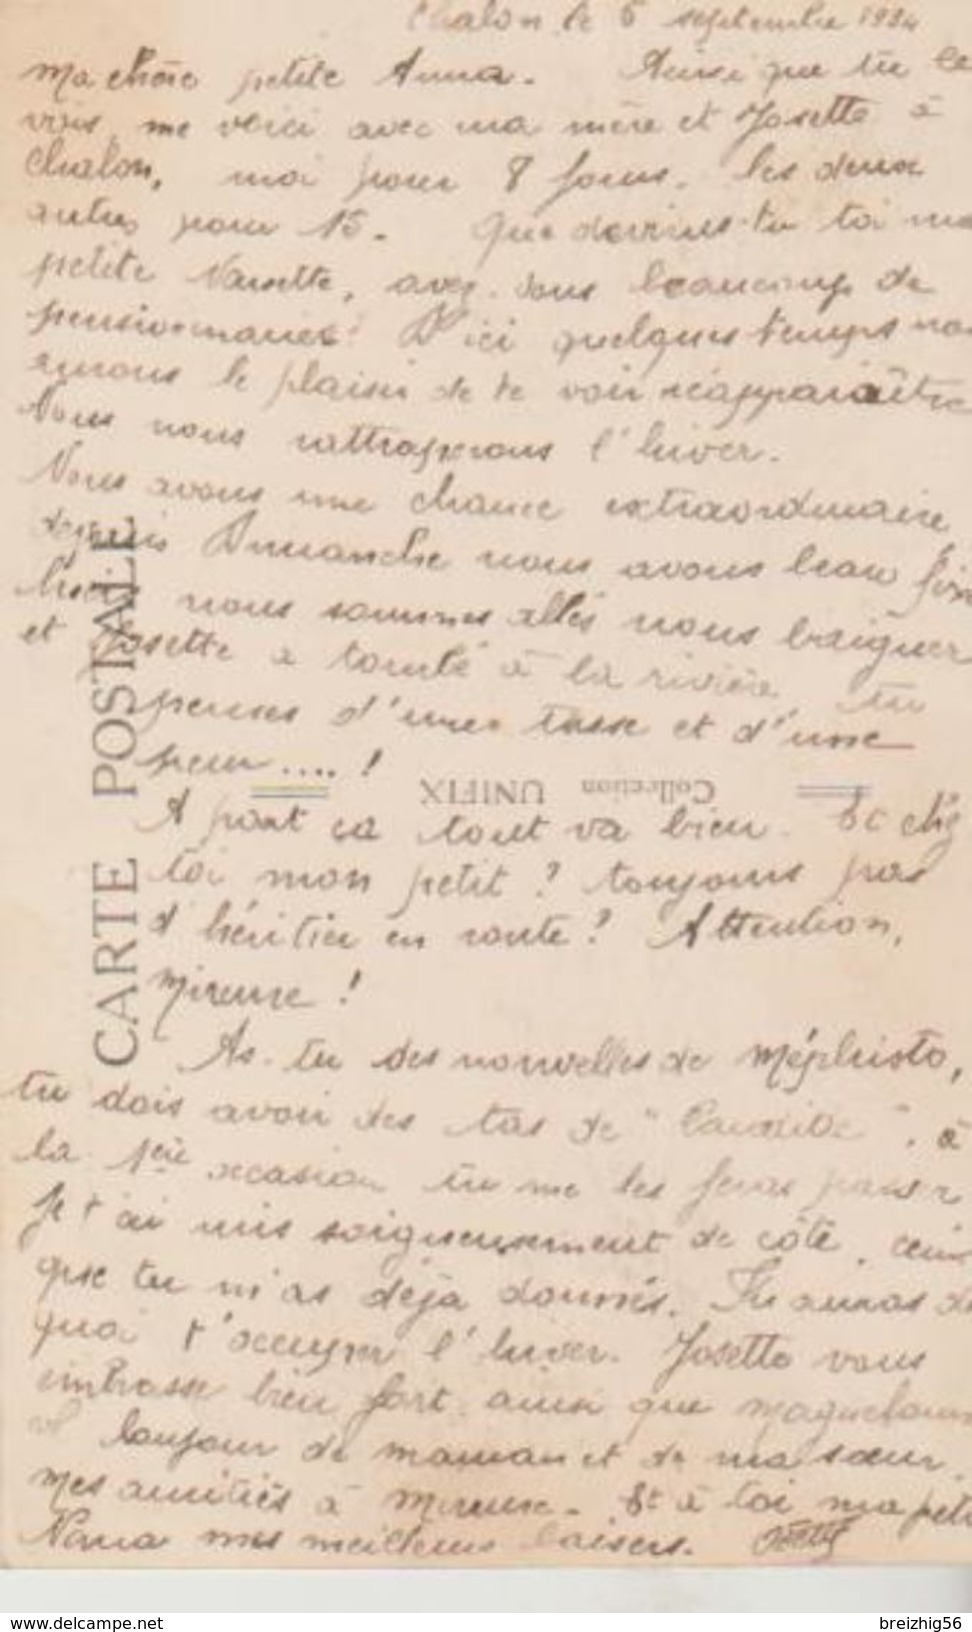 Chalon le 6 septembre 1934
Ma chère petite Anna. Ainsi que tu le
vois me voici avec ma mère et Josette à
Chalon, moi pour 8 jours, les deux
autres pour 15. Que deviens-tu toi ma
petite Nanette, avez-vous beaucoup de
pensionnaires? D'ici quelques temps nous
aurons le plaisir de te voir réapparaître
Nous nous rattraperons l'hiver.
Nous avons une chance extraordinaire,
depuis Dimanche nous avons beau fixe
hier nous sommes allés nous baigner
et Josette a tombé à la rivière, tu
penses d'une tasse et d'une
peur ....!
A part ça tout va bien. Et chez
toi mon petit? toujours pas
d'héritier en route? Attention,
Mireuse!
As-tu des nouvelles de Méphisto,
tu dois avoir des tas de " ", à
la 1ère occasion tu me les feras passer
Je t'ai mis soigneusement de côté, ceux
que tu m'as déjà donnés. Tu auras de
quoi t'occuper l'hiver. Josette vous
embrasse bien fort ainsi que
bonjour de maman et de ma sœur.
Mes amitiés à Mireuse. Et à toi ma petite
Nana mes meilleurs baisers.
CARTE POSTALE
Collection UNIFIX
breizhig56